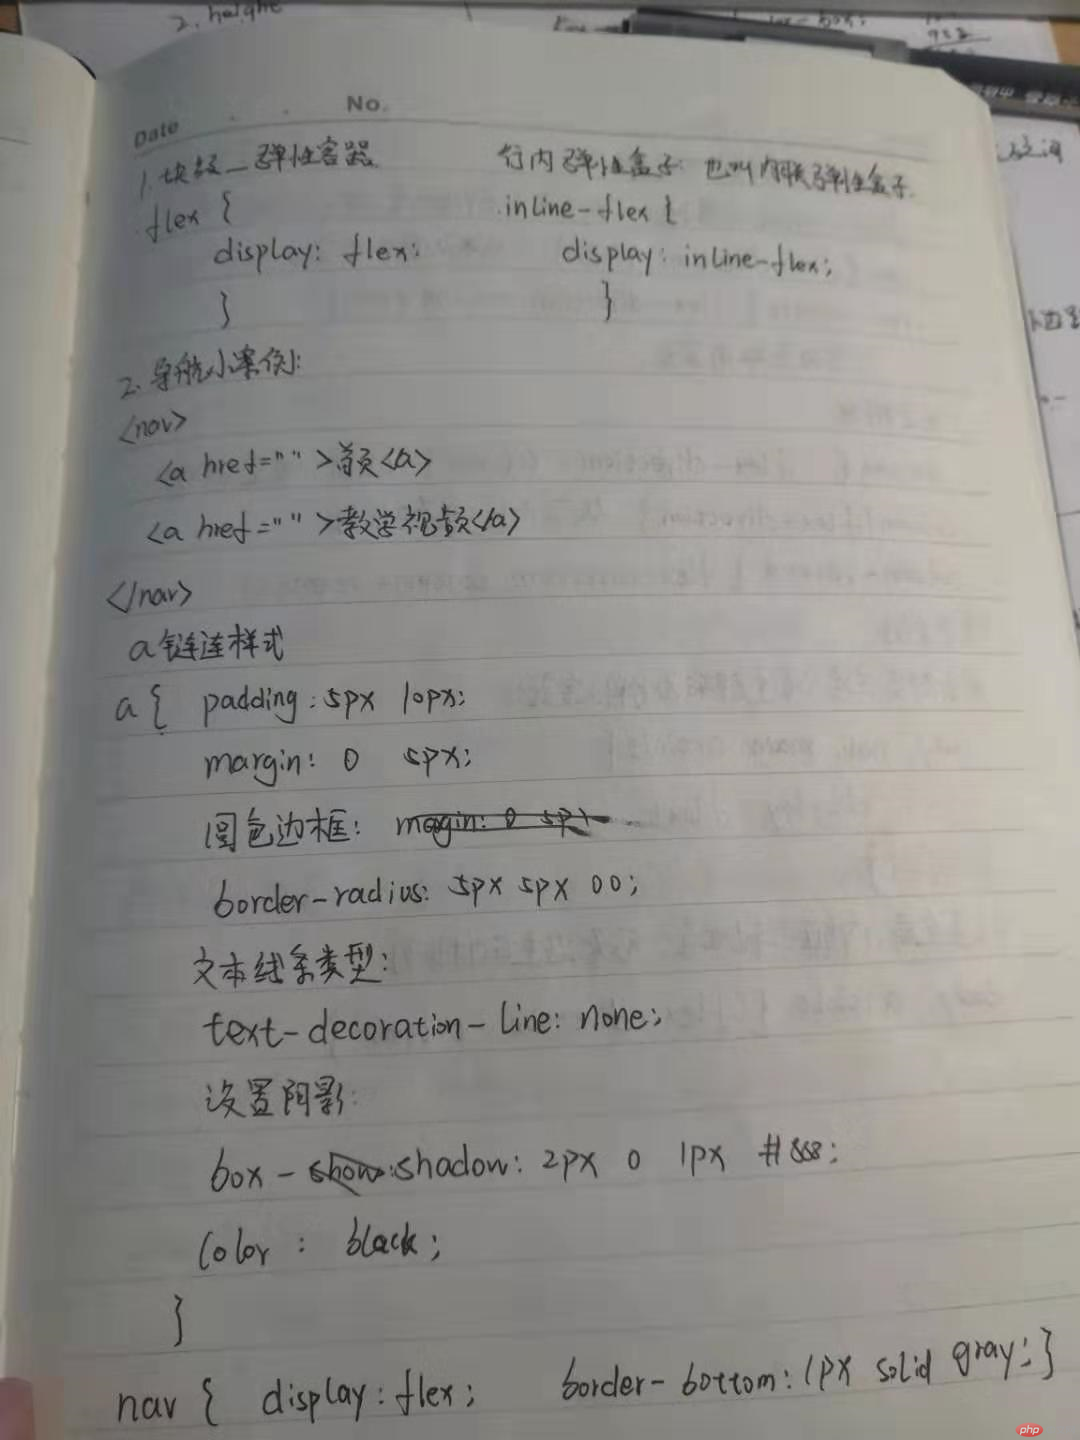 2. height
Date No.
1. 块级—弹性容器 行内弹性盒子: 也叫内联弹性盒子.
.flex { .inline-flex {
display: flex; display: inline-flex;
} }
2. 导航小案例:
<nav>
<a href="" >首页<a>
<a href="" >教学视频</a>
</nav>
a链连样式
a { padding: 5px 10px;
margin: 0 5px;
圆色边框: margin: 0 5px
border-radius: 5px 5px 0 0;
文本线条类型:
text-decoration-line: none;
设置阴影:
box-show shadow: 2px 0 1px #888;
color : black;
}
nav { display: flex; border-bottom: 1px solid gray; }
php